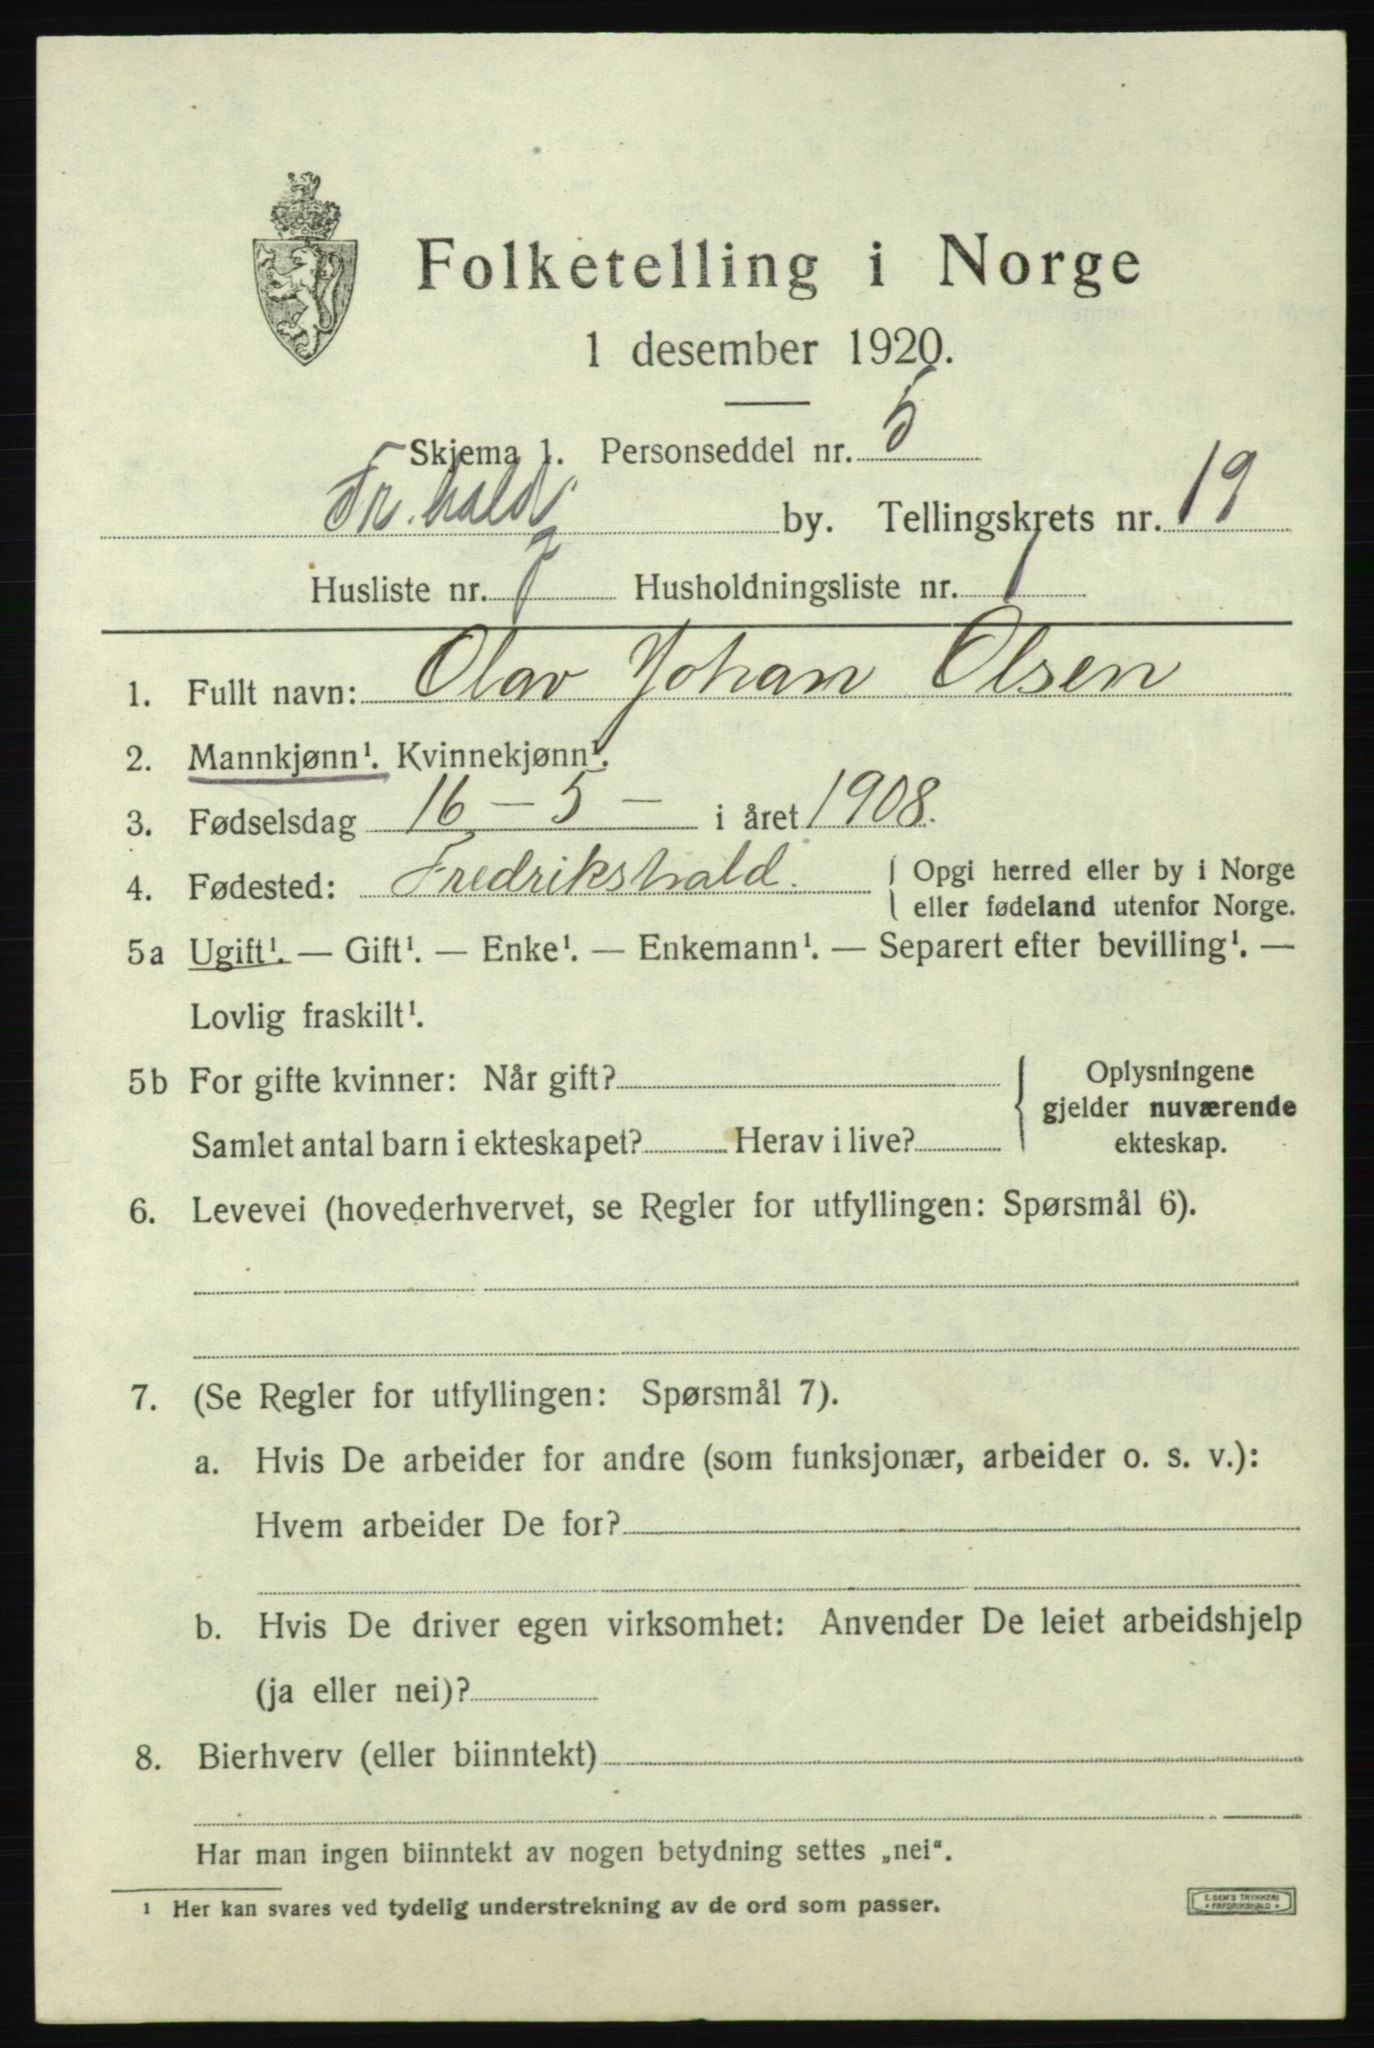 Folketelling i Norge
1 desember 1920.
Skjema 1. Personseddel nr. 5
Fr.hald by. Tellingskrets nr. 19
Husliste nr. Husholdningsliste nr. 1
1. Fullt navn: Olav Johan Olsen
2. Mannkjønn¹. Kvinnekjønn¹.
3. Fødselsdag 16 – 5 – i året 1908.
4. Fødested: Fredrikshald. { Opgi herred eller by i Norge
eller fødeland utenfor Norge.
5a Ugift¹. — Gift¹. — Enke¹. — Enkemann¹. — Separert efter bevilling¹. —
Lovlig fraskilt¹.
5b For gifte kvinner: Når gift? { Oplysningene
gjelder nuværende
Samlet antal barn i ekteskapet? Herav i live? ekteskap.
6. Levevei (hovederhvervet, se Regler for utfyllingen: Spørsmål 6).
7. (Se Regler for utfyllingen: Spørsmål 7).
a. Hvis De arbeider for andre (som funksjonær, arbeider o. s. v.):
Hvem arbeider De for?
b. Hvis De driver egen virksomhet: Anvender De leiet arbeidshjelp
(ja eller nei)?
8. Bierhverv (eller biinntekt)
Har man ingen biinntekt av nogen betydning settes „nei“.
¹ Her kan svares ved tydelig understrekning av de ord som passer.
E. SEM'S TRYKKERI
• FREDRIKSHALD •